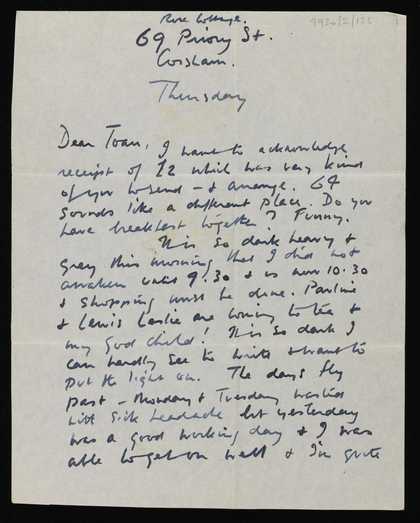 Rose Cottage.
9920/2/122
69 Priory St.
Corsham.
Thursday
Dear Toam, I want to acknowledge
receipt of £2 which was very kind
of you to send - & arrange. 64
sounds like a different place. Do you
have breakfast together? Funny.
It is so dark heavy &
gray this morning that I did not
awaken until 9.30 & is now 10.30
& shopping must be done. Pauline
& Lewis Leslie are coming to tea &
my god child! It is so dark I
can hardly see to write & want to
put the light on. The days fly
past - Monday & Tuesday wasted
with sick headache but yesterday
was a good working day & I was
able to get on well & I'm quite